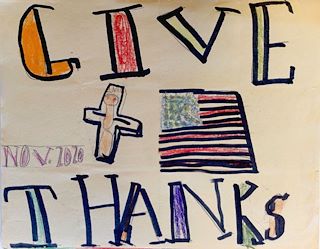 GIVE
NOV. 2020
THANKS